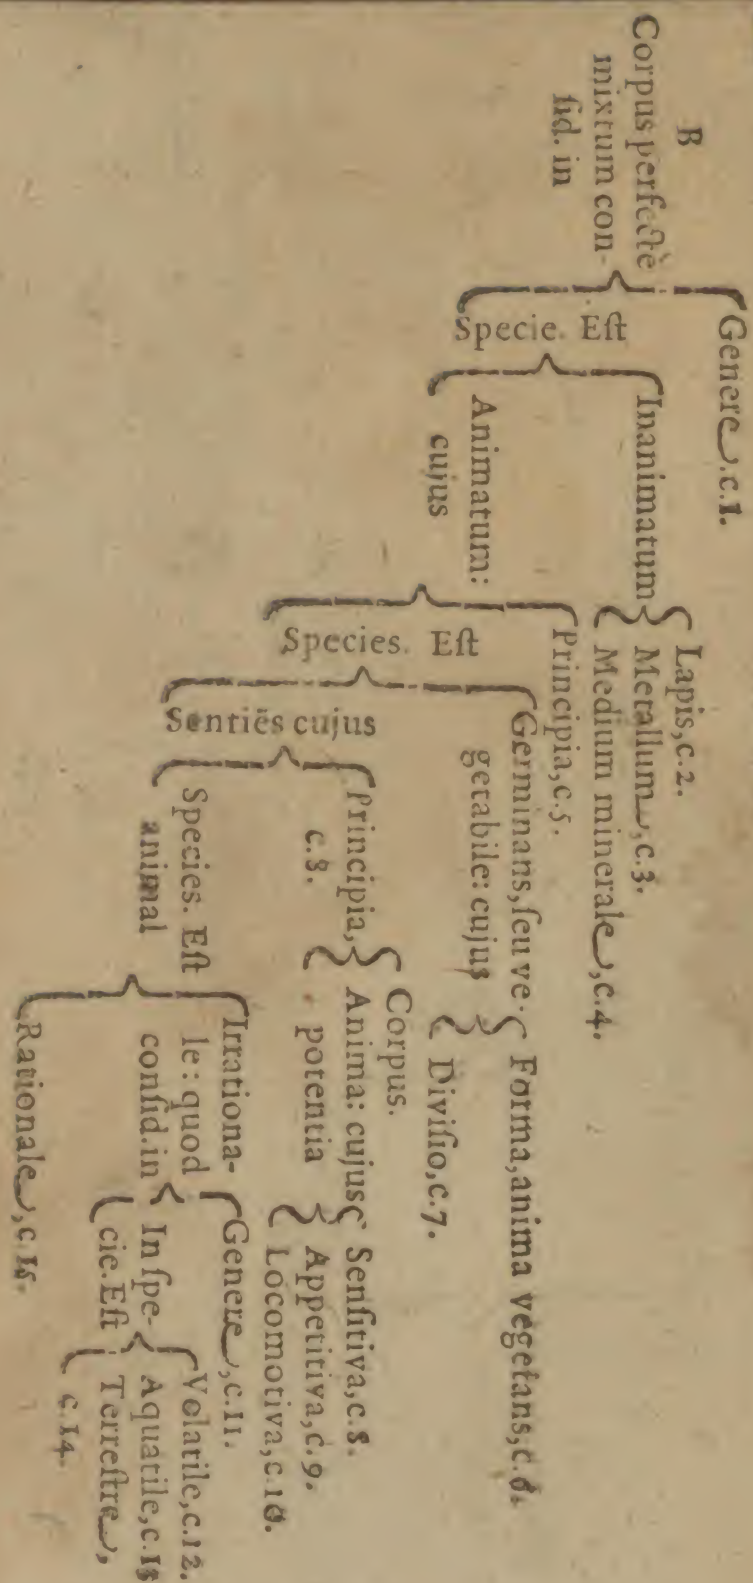 B
Corpus perfectè
mixtum con-
ſid. in
Genere, c. 1.
Specie. Eſt
Inanimatum
Lapis, c. 2.
Metallum, c. 3.
Medium minerale, c. 4.
Animatum:
cujus
Principia, c. 5.
Species. Eſt
Germinans, ſeu ve-
getabile: cujus
Forma, anima vegetans, c. 6.
Diviſio, c. 7.
Sentiēs cujus
Principia,
c. 8.
Corpus.
Anima: cujus
potentia
Senſitiva, c. 8.
Appetitiva, c. 9.
Locomotiva, c. 10.
Species. Eſt
animal
Irrationa-
le: quod
conſid. in
Genere, c. 11.
In ſpe-
cie. Eſt
Volatile, c. 12.
Aquatile, c. 13
Terreſtre,
c. 14.
Rationale, c. 15.